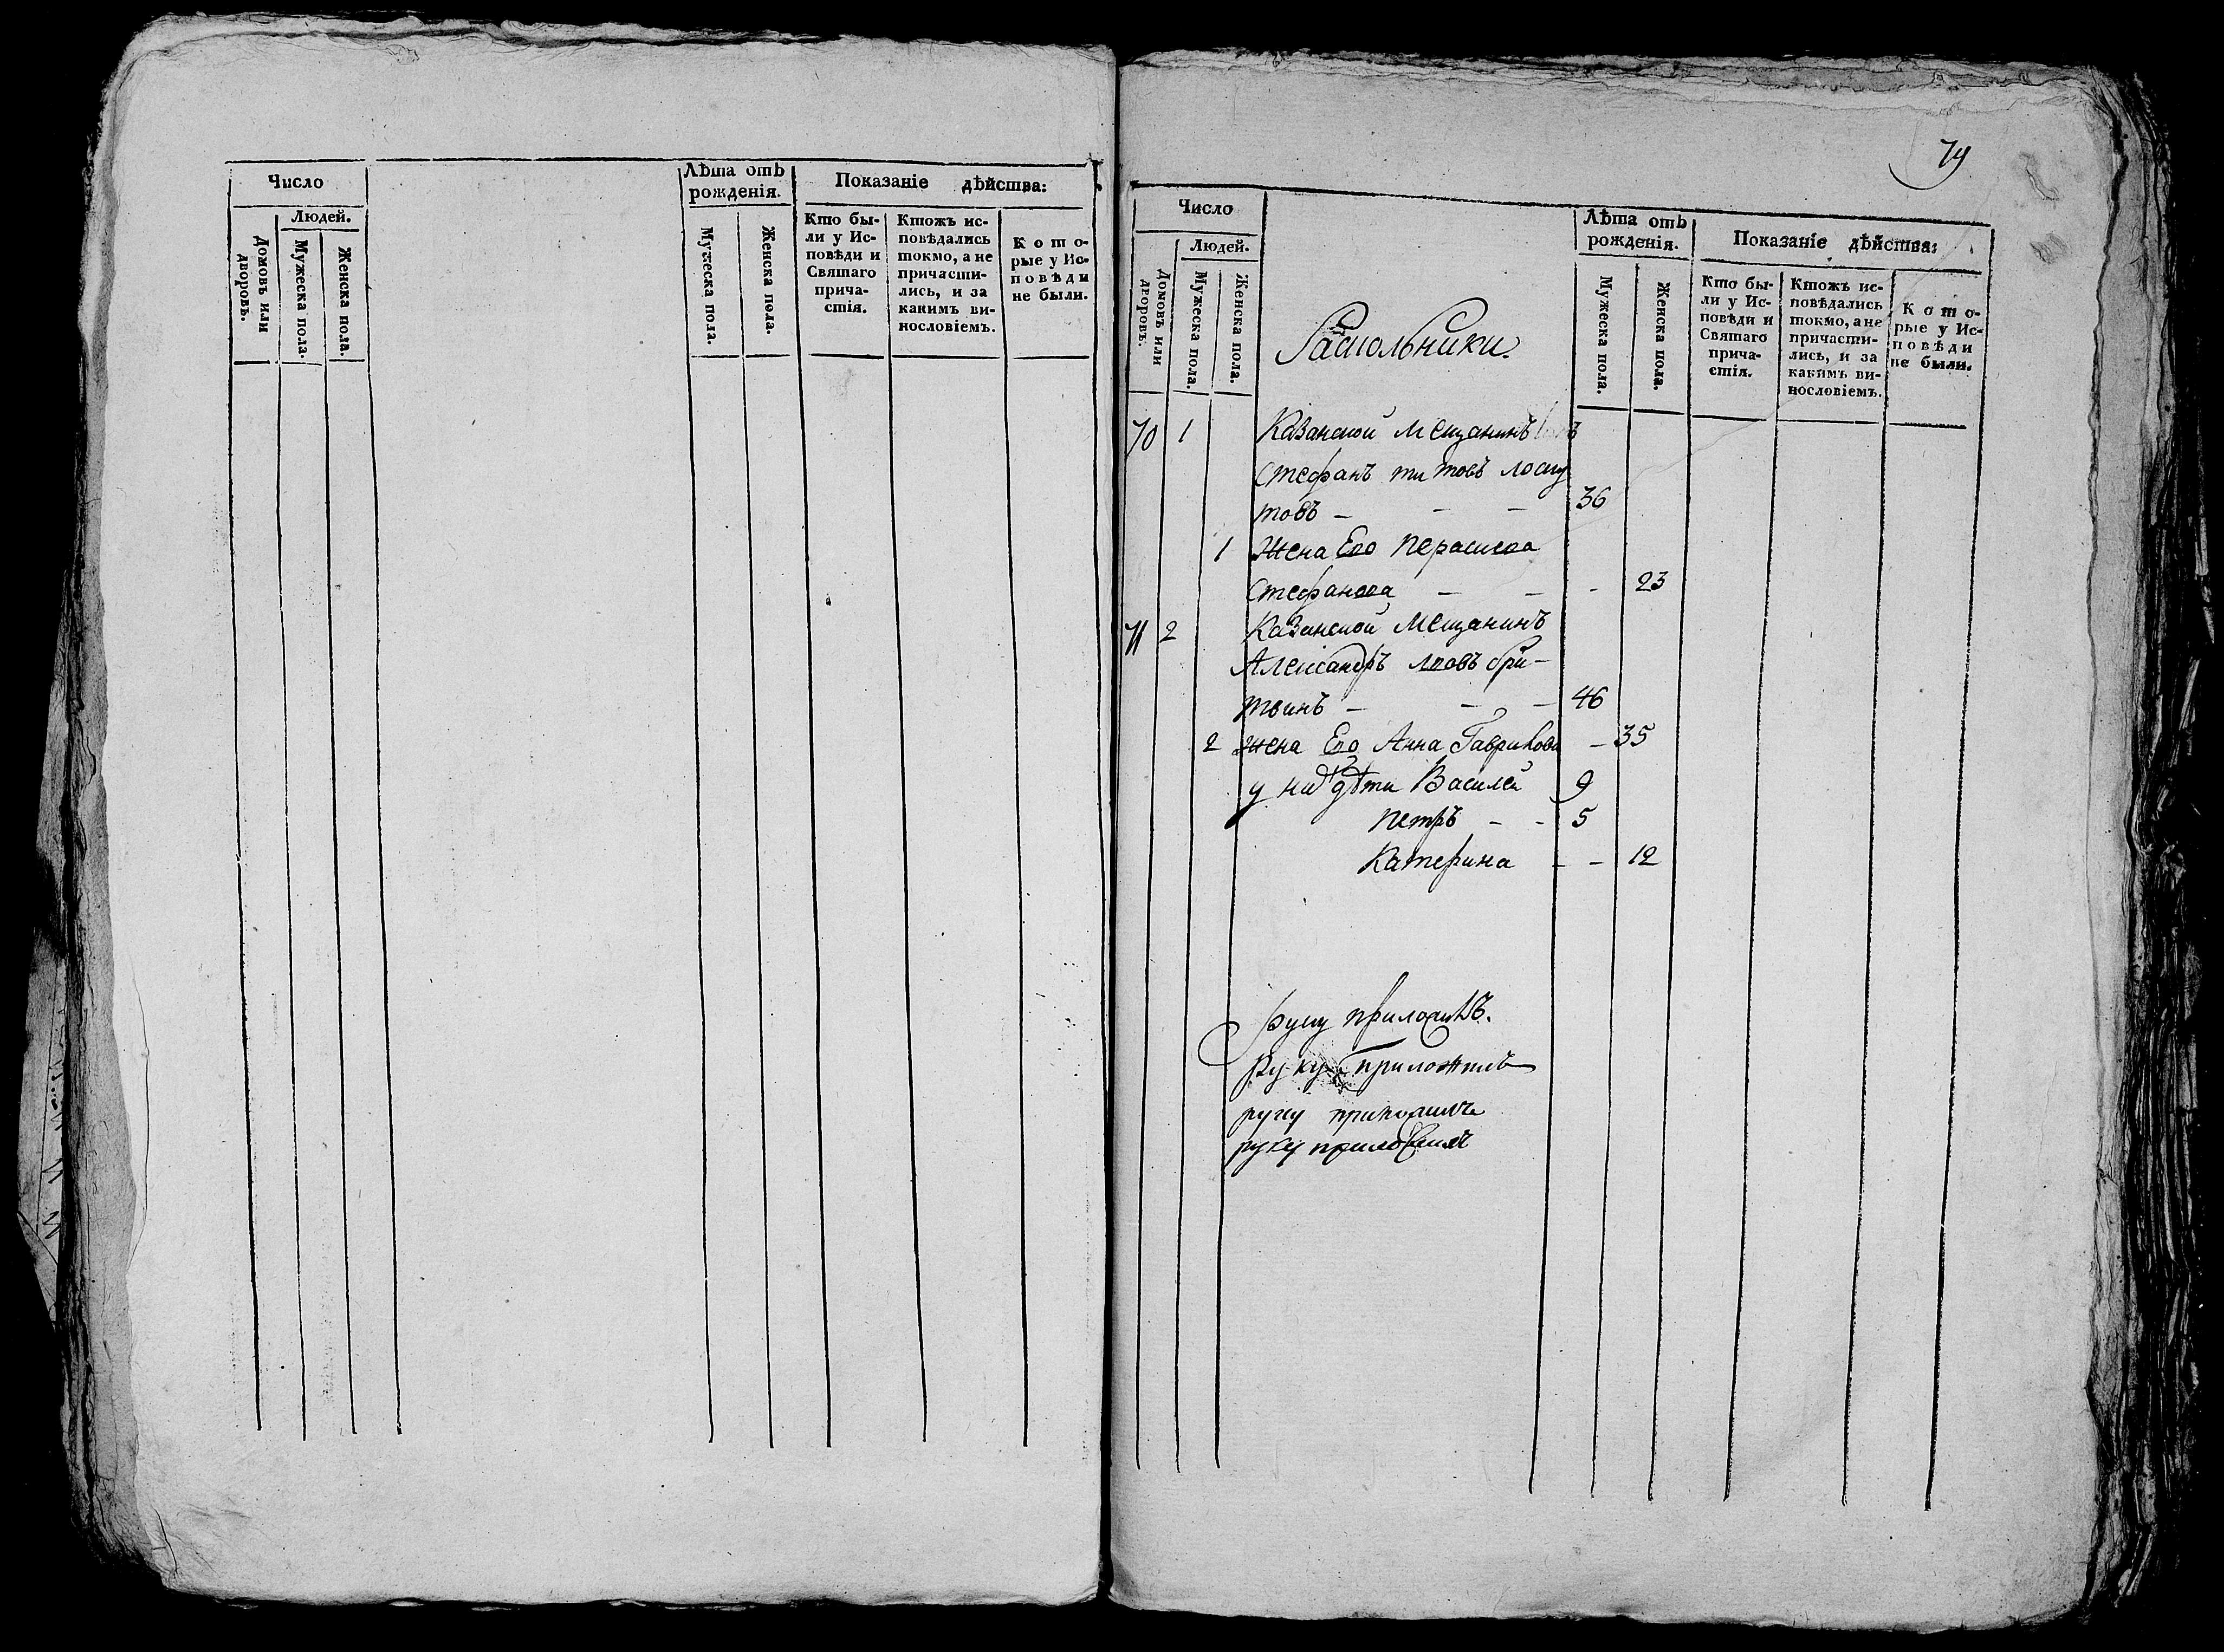 Число
Людей.
Домовъ или дворовъ.
Мужеска пола.
Женска пола.
Лѣта отъ
рожденія.
Мужеска пола.
Женска пола.
Показаніе дѣйства:
Кто бы-
ли у Ис-
повѣди и
Святаго
прича-
стія.
Ктожъ ис-
повѣдались
токмо, а не
причасти-
лись, и за
какимъ ви-
нословіемъ.
Кото-
рые у Ис-
повѣди
не были.
79
Число
Людей.
Домовъ или дворовъ.
Мужеска пола.
Женска пола.
Раскольники.
Лѣта отъ
рожденія.
Мужеска пола.
Женска пола.
Показаніе дѣйства:
Кто бы-
ли у Ис-
повѣди и
Святаго
прича-
стія.
Ктожъ ис-
повѣдались
токмо, а не
причасти-
лись, и за
какимъ ви-
нословіемъ.
Кото-
рые у Ис-
повѣди
не были.
70 1 Казанской мещанинъ
Стефанъ Титовъ Лоску
товъ - - - 36
1 Жена Его Пераскева
Стефанова - - - 23
71 2 Казанской мещанинъ
Александръ Львовъ бри-
твинъ - - - 46
2 жена Его Анна Гаврилова - 35
у нихъ дѣти Василей 9
Петръ - - 5
Катерина - - 12
руку приложилъ.
Руку приложилъ
руку приложилъ
руку приложилъ